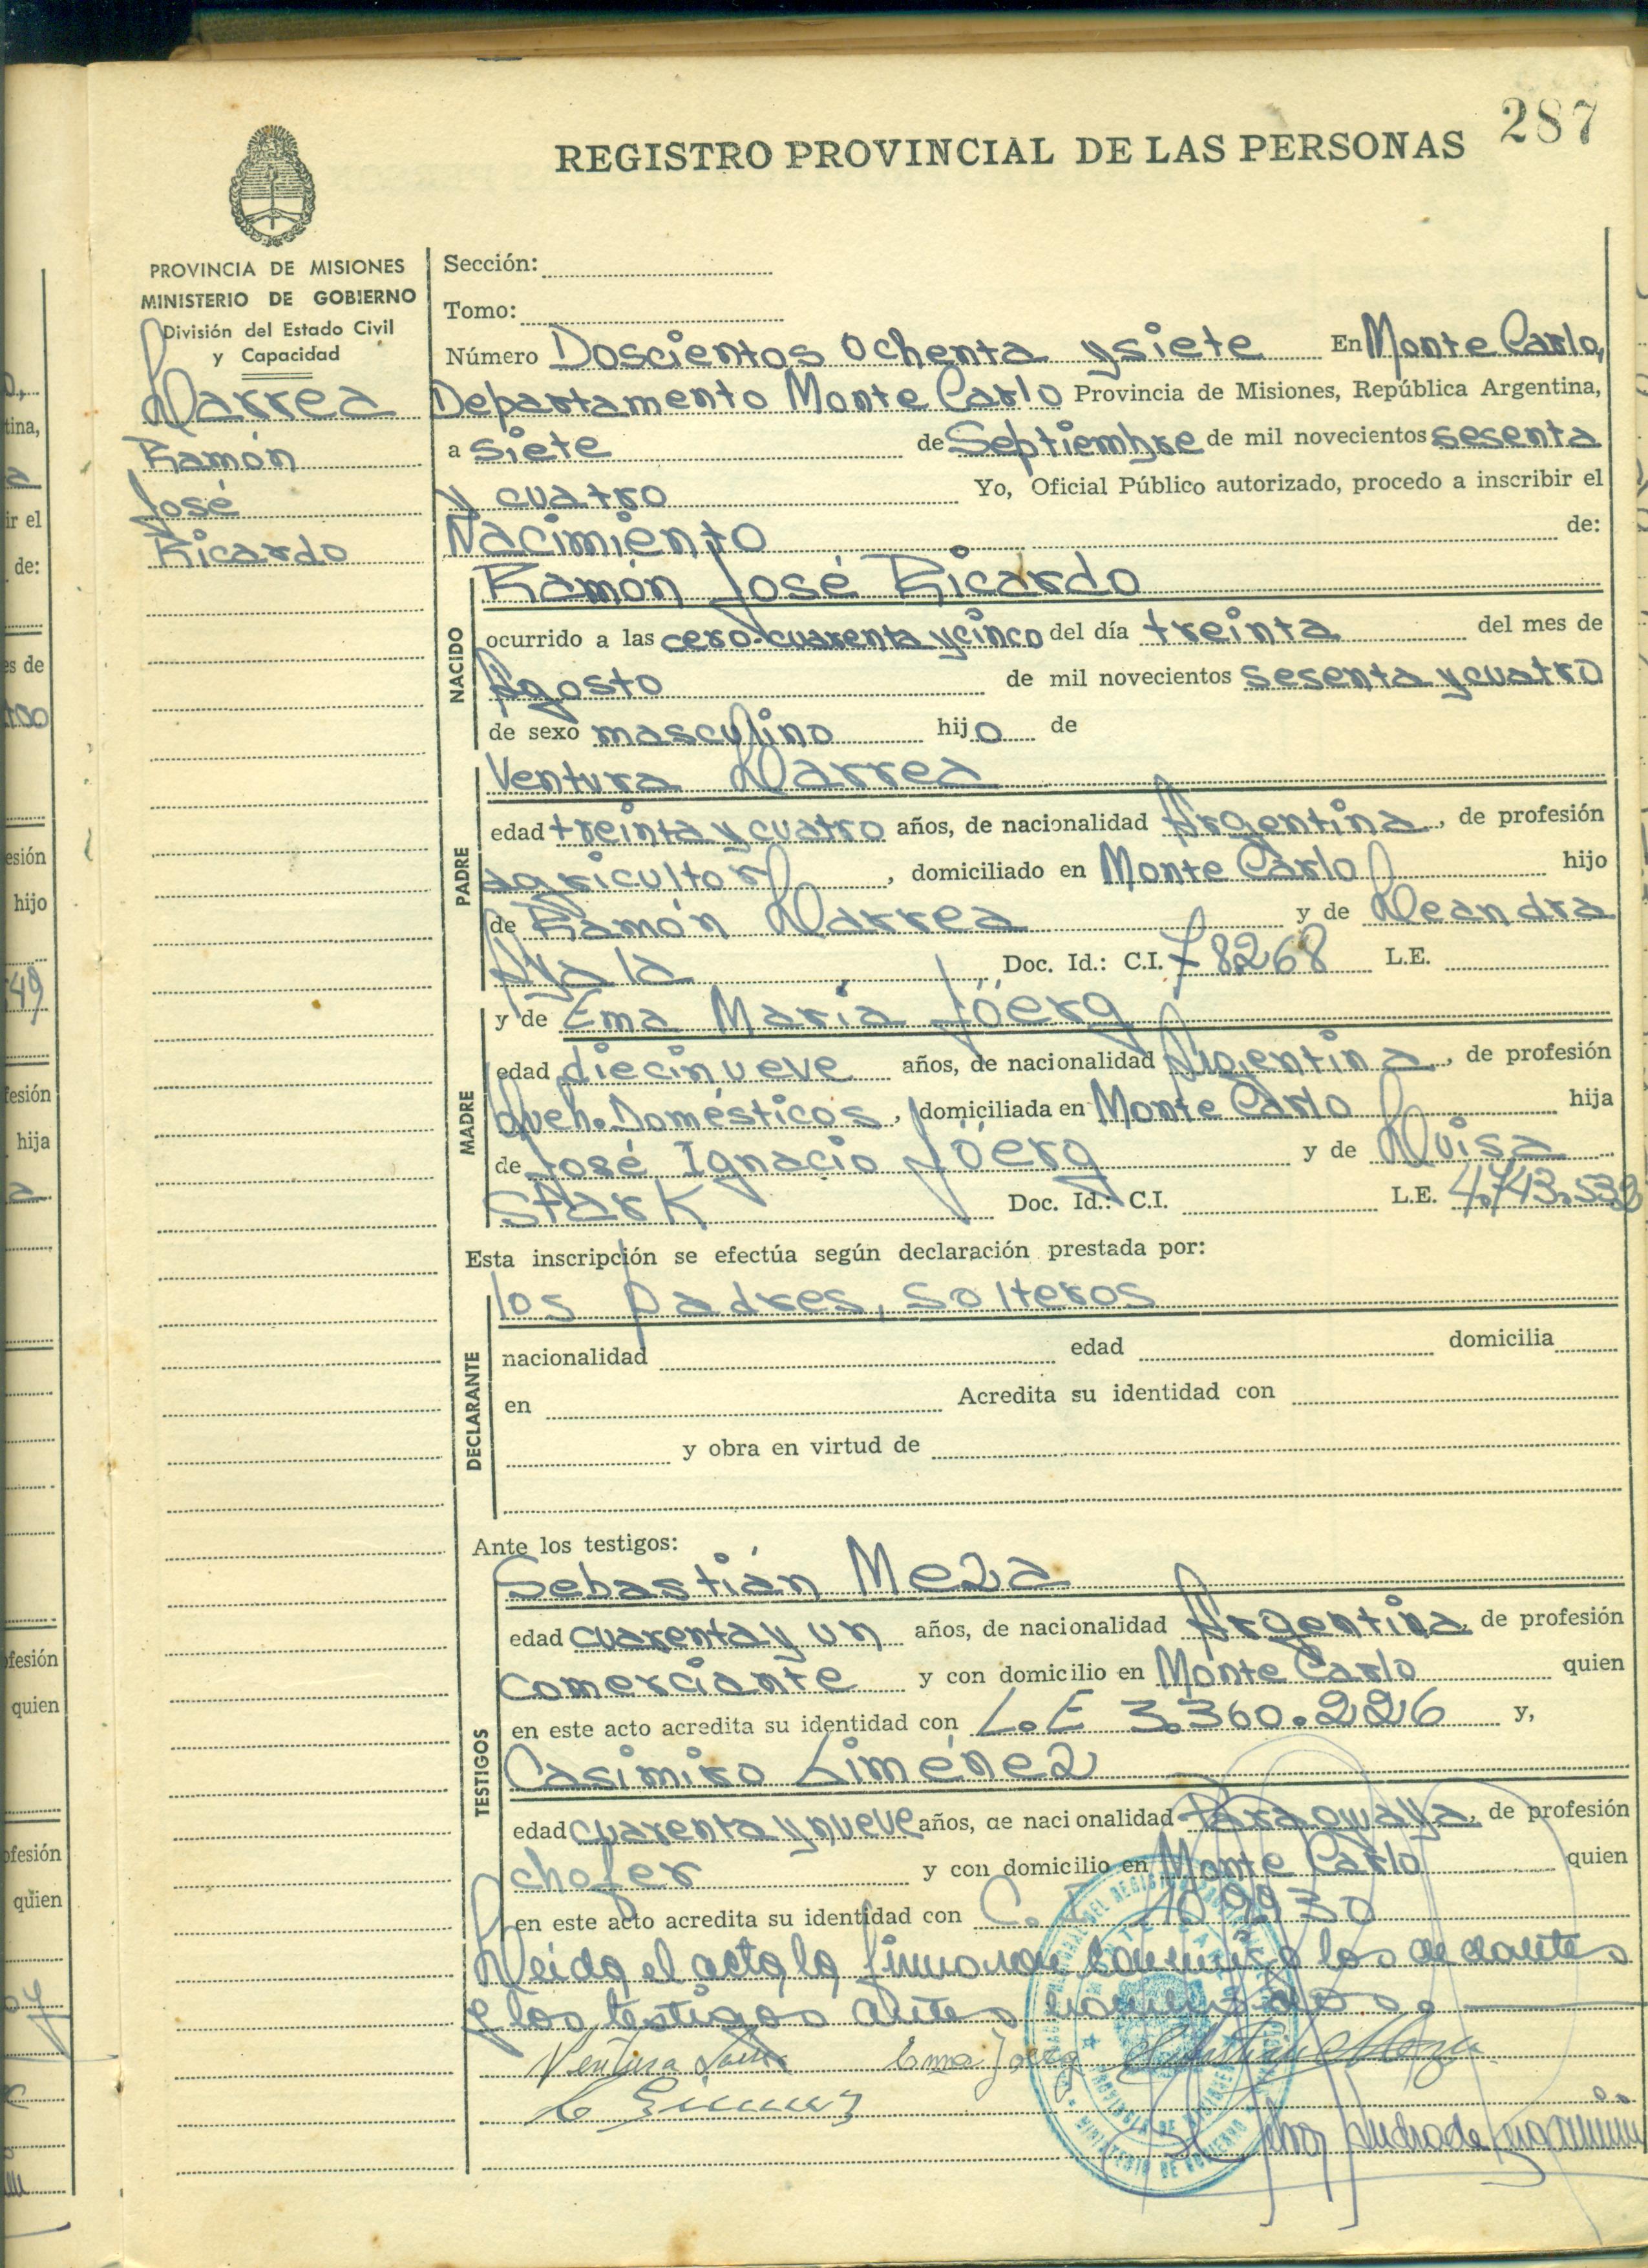 287
REGISTRO PROVINCIAL DE LAS PERSONAS
PROVINCIA DE MISIONES
MINISTERIO DE GOBIERNO
División del Estado Civil
y Capacidad
Larrea
Ramón
José
Ricardo
Sección:
Tomo:
Número Doscientos Ochenta y siete En Monte Carlo,
Departamento Monte Carlo Provincia de Misiones, República Argentina,
a siete de Septiembre de mil novecientos sesenta
y cuatro Yo, Oficial Público autorizado, procedo a inscribir el
Nacimiento de:
NACIDO
Ramón José Ricardo
ocurrido a las cero-cuarenta y cinco del día treinta del mes de
Agosto de mil novecientos sesenta y cuatro
de sexo masculino hijo de
PADRE
Ventura Larrea
edad treinta y cuatro años, de nacionalidad Argentina, de profesión
agricultor, domiciliado en Monte Carlo hijo
de Ramón Larrea y de Leandra
Ayala Doc. Id.: C.I. 78268 L.E.
MADRE
y de Ema María Jöerg
edad diecinueve años, de nacionalidad Argentina, de profesión
Queh. Domésticos, domiciliada en Monte Carlo hija
de José Ignacio Jöerg y de Luisa
Stark Doc. Id.: C.I. L.E. 4.743.532
Esta inscripción se efectúa según declaración prestada por:
DECLARANTE
los padres, solteros
nacionalidad edad domicilia
en Acredita su identidad con
y obra en virtud de
Ante los testigos:
TESTIGOS
Sebastián Meza
edad cuarenta y un años, de nacionalidad Argentina de profesión
comerciante y con domicilio en Monte Carlo quien
en este acto acredita su identidad con L.E 3.360.226 y,
Casimiro Liménez
edad cuarenta y nueve años, de nacionalidad Paraguaya, de profesión
chofer y con domicilio en Monte Carlo quien
en este acto acredita su identidad con C. I 109930
Leida el acta la firmaron conmigo los declarantes
y los testigos antes nombrados.
Ventura Larrea Ema Joerg
PROVINCIA DE MISIONES
MINISTERIO DE GOBIERNO